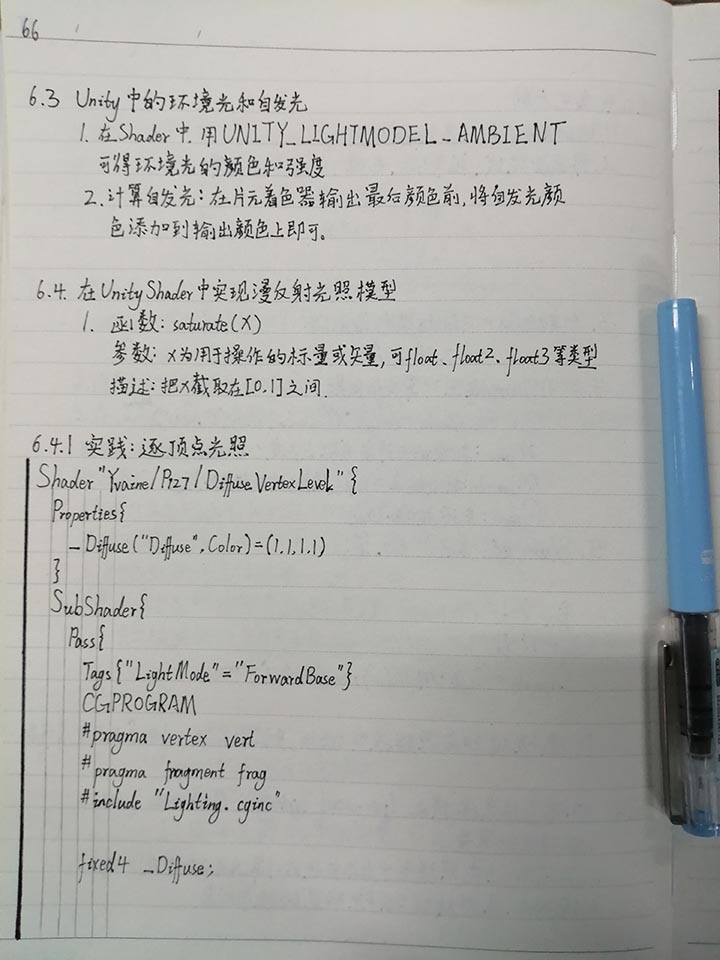 66
6.3 Unity中的环境光和自发光
1. 在Shader中.用UNITY_LIGHTMODEL_AMBIENT
可得环境光的颜色和强度
2. 计算自发光：在片元着色器输出最后颜色前,将自发光颜
色添加到输出颜色上即可。
6.4. 在UnityShader中实现漫反射光照模型
1. 函数: saturate(X)
参数: x为用于操作的标量或矢量,可float、float2、float3等类型
描述:把X截取在[0,1]之间.
6.4.1 实践:逐顶点光照
Shader "Yvaine/P127/DiffuseVertexLevel" {
Properties{
_Diffuse("Diffuse",Color)=(1,1,1,1)
}
SubShader{
Pass{
Tags{"LightMode"="ForwardBase"}
CGPROGRAM
#pragma vertex vert
#pragma fragment frag
#include "Lighting.cginc"
fixed4 _Diffuse;